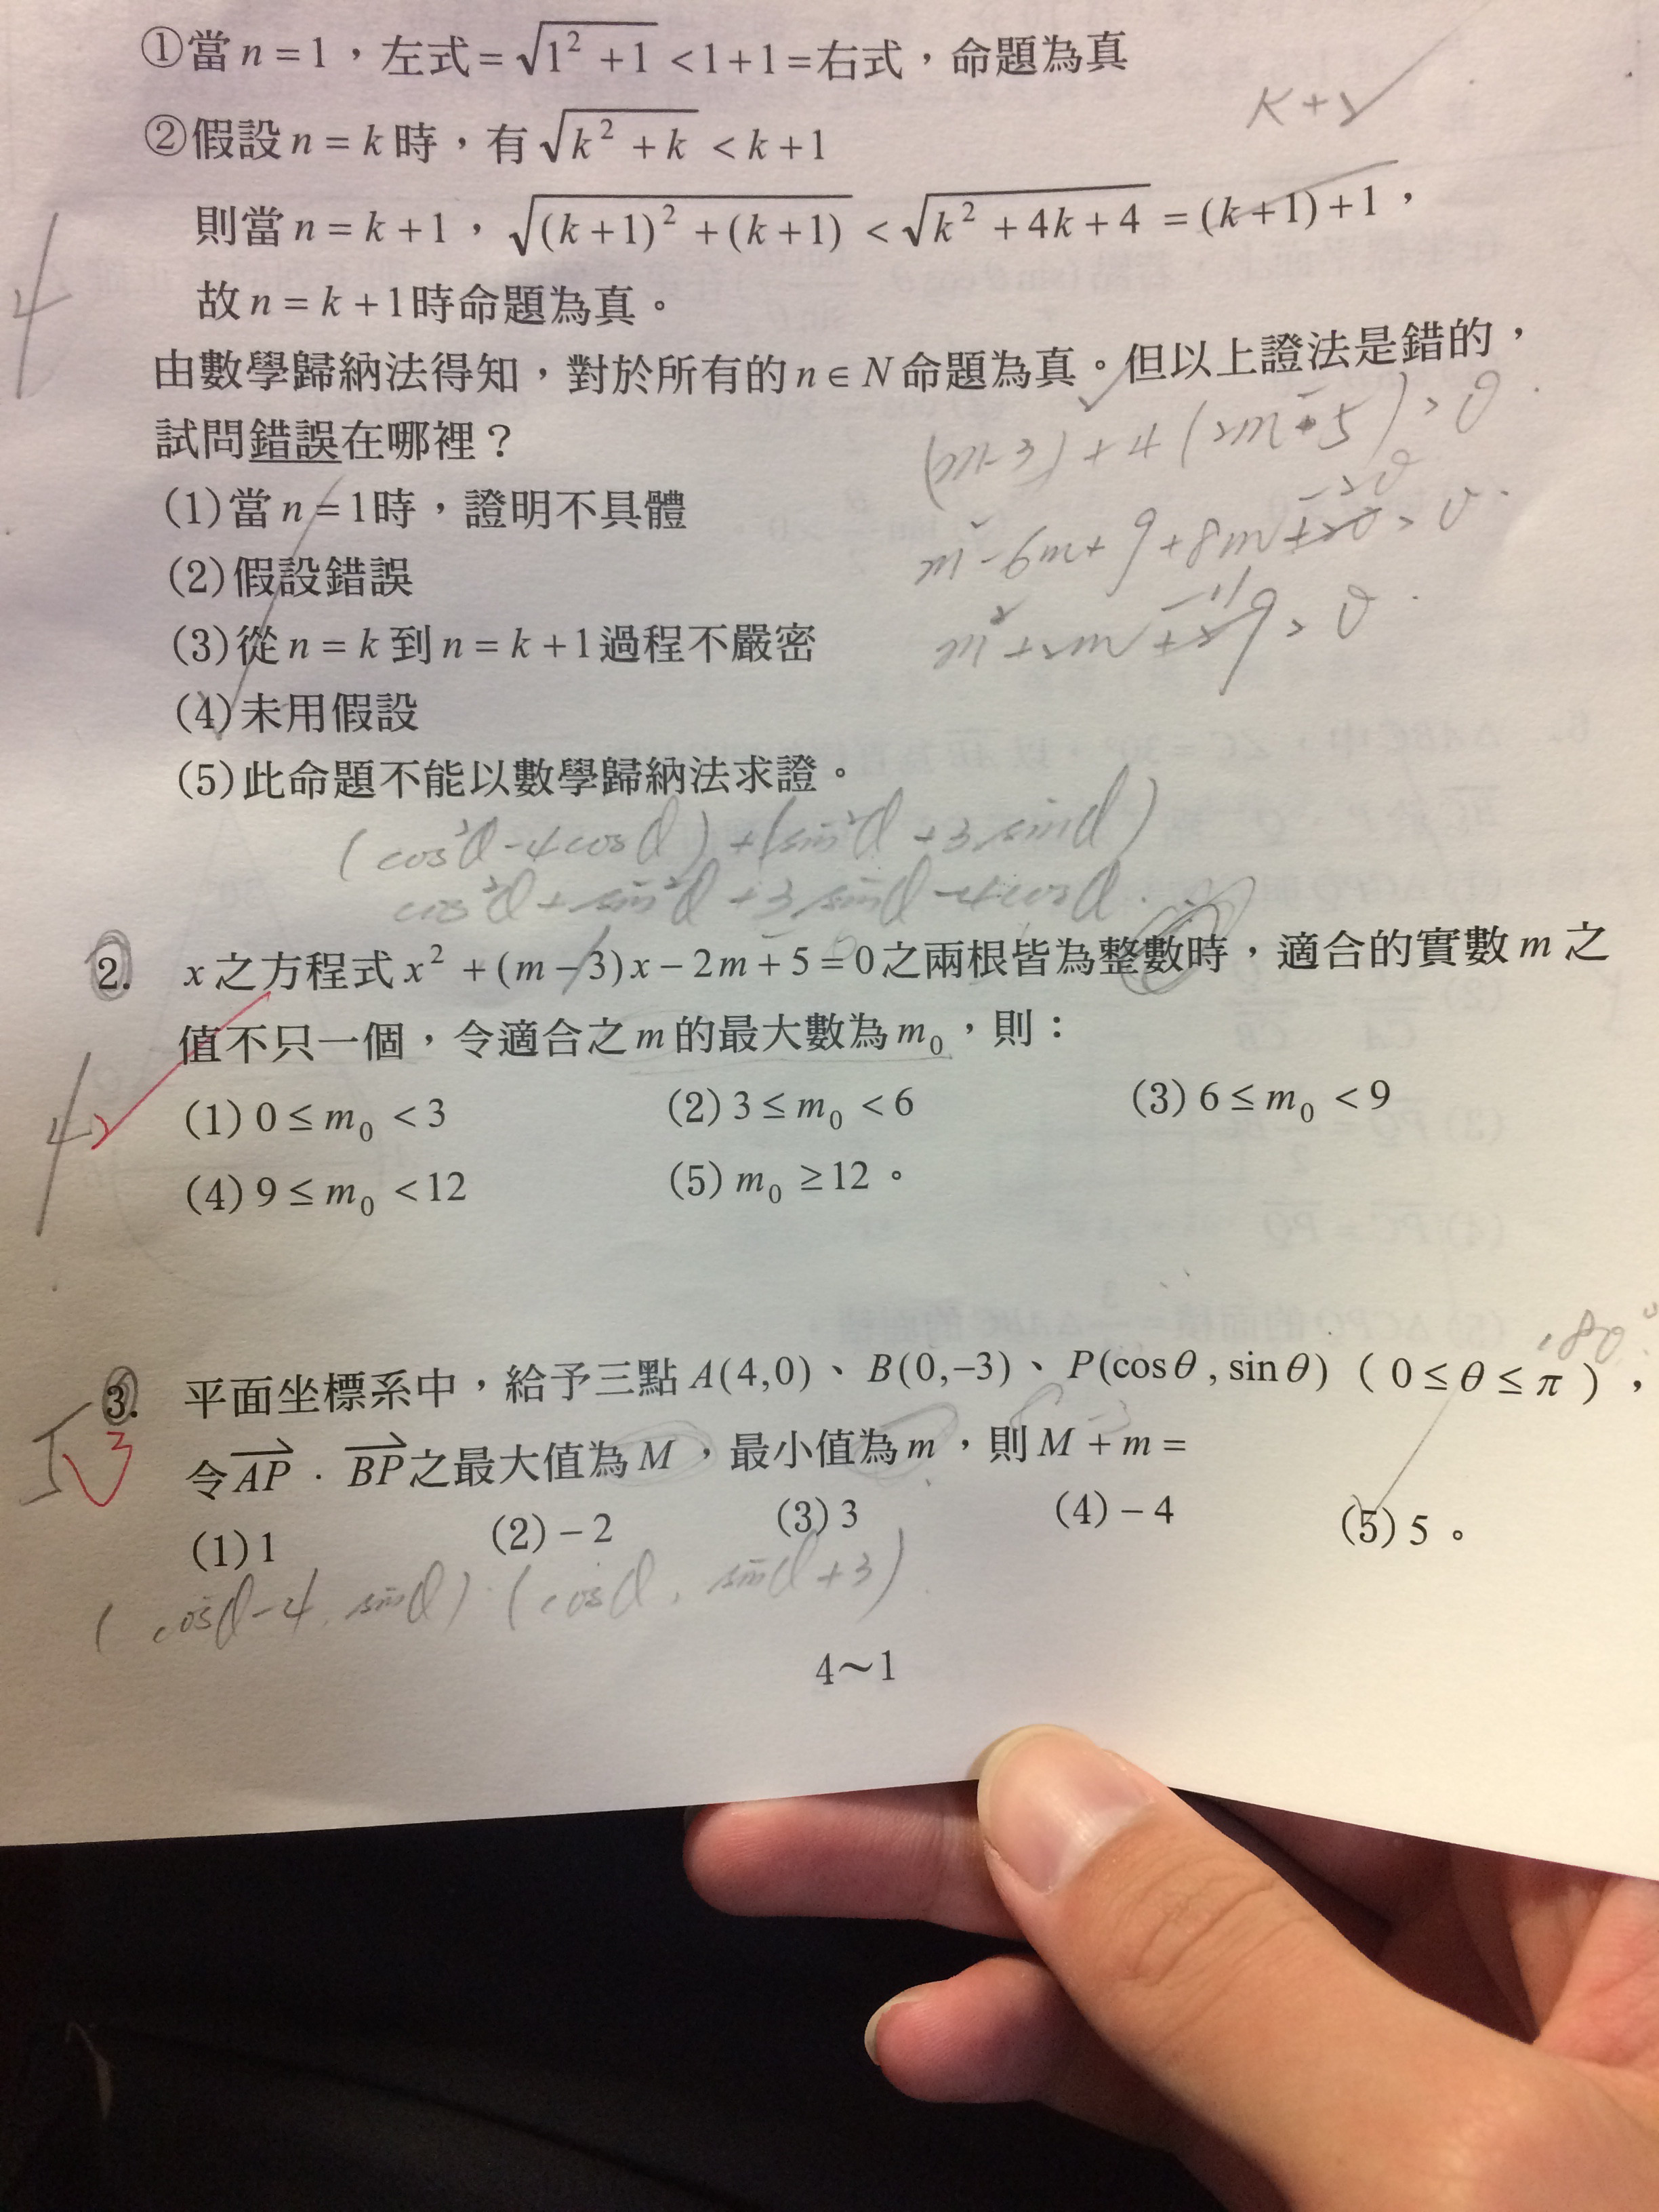 ①當 n = 1,左式 = √(1² + 1) < 1 + 1 = 右式,命題為真
K + 2
②假設 n = k 時,有 √(k² + k) < k + 1
則當 n = k + 1, √((k + 1)² + (k + 1)) < √(k² + 4k + 4) = (k + 1) + 1,
4
故 n = k + 1 時命題為真。
由數學歸納法得知,對於所有的 n ∈ N 命題為真。但以上證法是錯的,
試問錯誤在哪裡?
(m-3)² + 4(2m-5) > 0
(1) 當 n = 1 時,證明不具體
m² - 6m + 9 + 8m - 20 > 0
(2) 假設錯誤
(3) 從 n = k 到 n = k + 1 過程不嚴密
m² + 2m - 11 > 0
(4) 未用假設
(5) 此命題不能以數學歸納法求證。
(cos²θ - 4cosθ) + (sin²θ + 3sinθ)
cos²θ + sin²θ + 3sinθ - 4cosθ
2. x 之方程式 x² + (m − 3)x − 2m + 5 = 0 之兩根皆為整數時,適合的實數 m 之
值不只一個,令適合之 m 的最大數為 m₀,則:
4
(1) 0 ≤ m₀ < 3 (2) 3 ≤ m₀ < 6 (3) 6 ≤ m₀ < 9
(4) 9 ≤ m₀ < 12 (5) m₀ ≥ 12。
180°
3. 平面坐標系中,給予三點 A(4,0)、B(0,−3)、P(cosθ, sinθ)(0 ≤ θ ≤ π),
5 3
令 AP · BP 之最大值為 M,最小值為 m,則 M + m =
(1) 1 (2) −2 (3) 3 (4) −4 (5) 5。
(cosθ-4, sinθ)·(cosθ, sinθ+3)
4~1